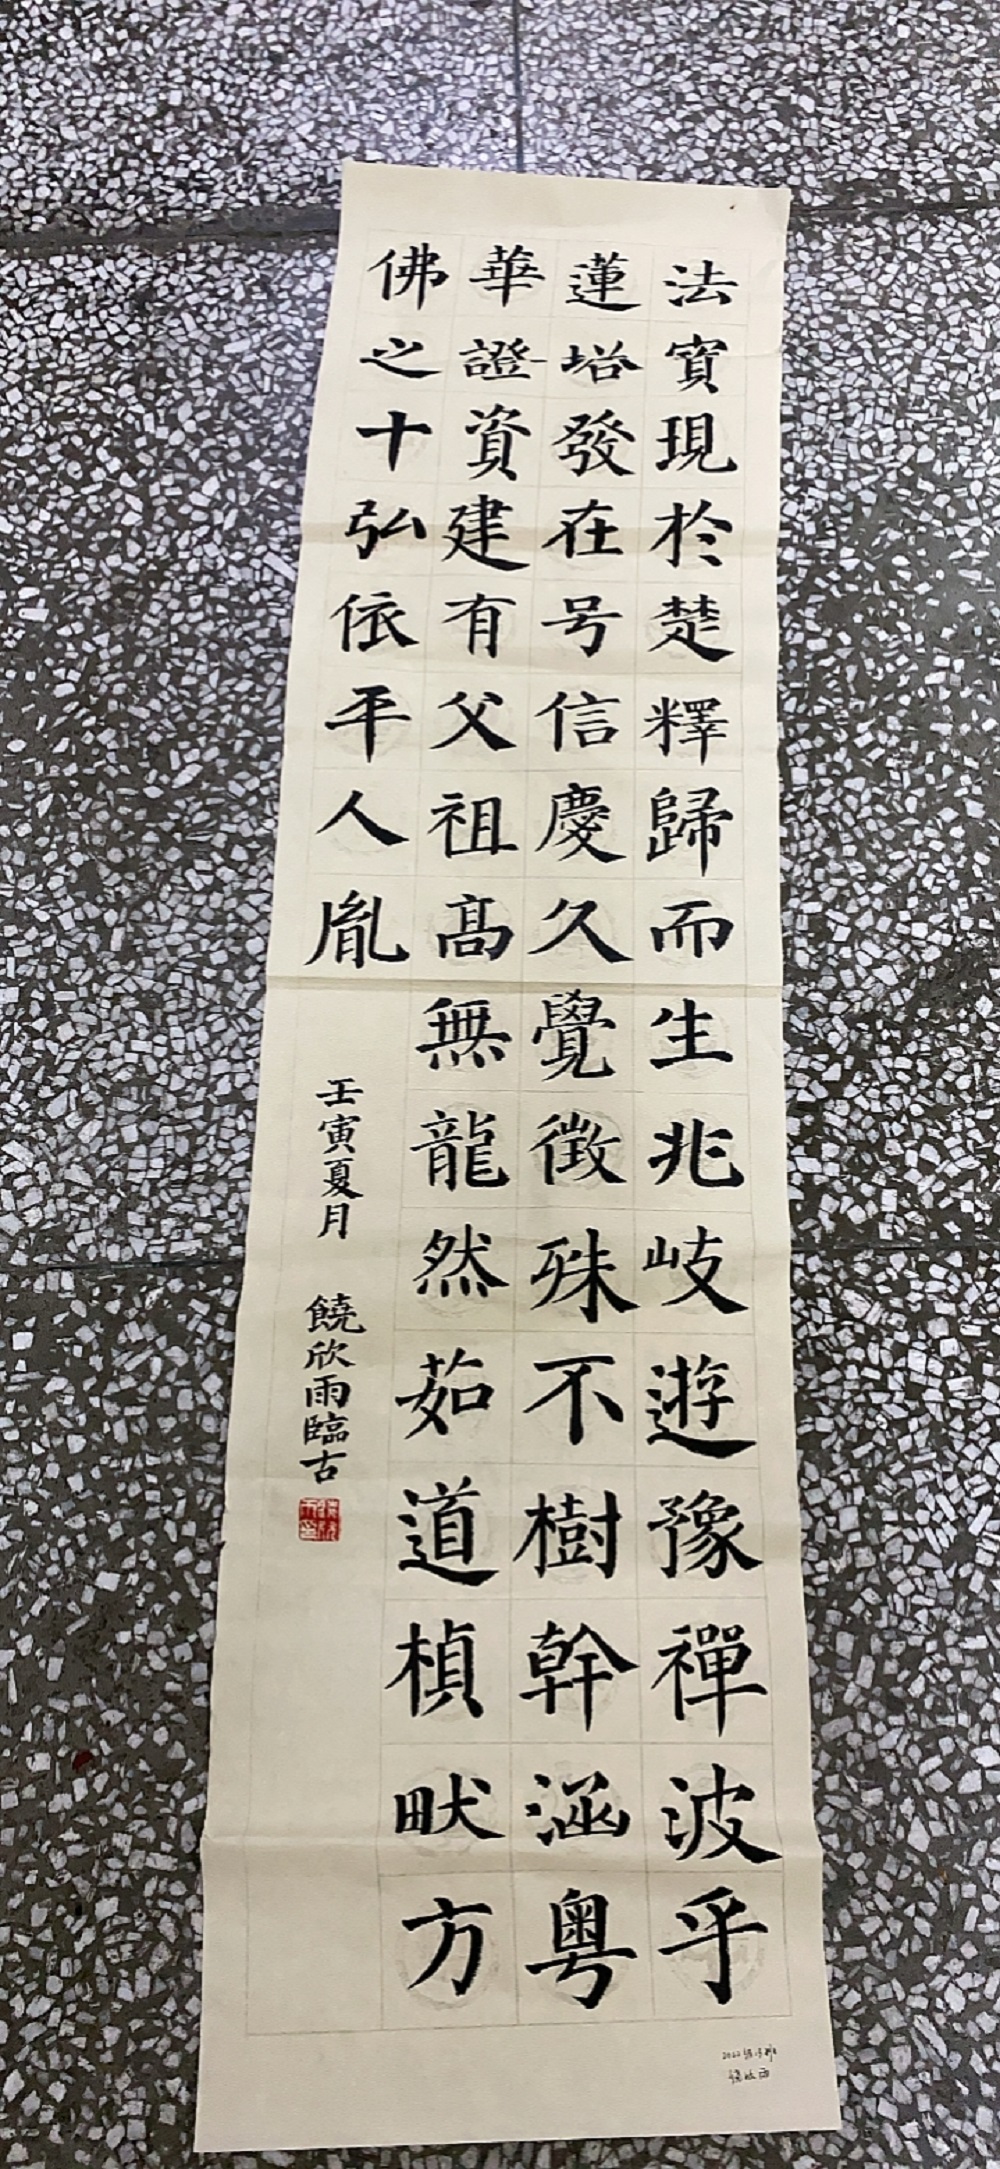 法寶現於楚釋歸而生兆岐遊豫禪波乎
蓮塔發在号信慶久覺徵殊不樹幹涵粤
華證資建有父祖髙無龍然茹道楨畎方
佛之十弘依平人胤
壬寅夏月 饒欣雨臨古